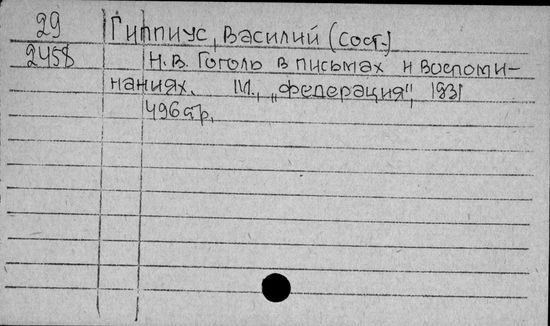 29 Гиппиус, Василий (сост.)
2458 Н.В. Гоголь в письмах и воспоми-
наниях. М., „Федерация", 1931
496 стр.